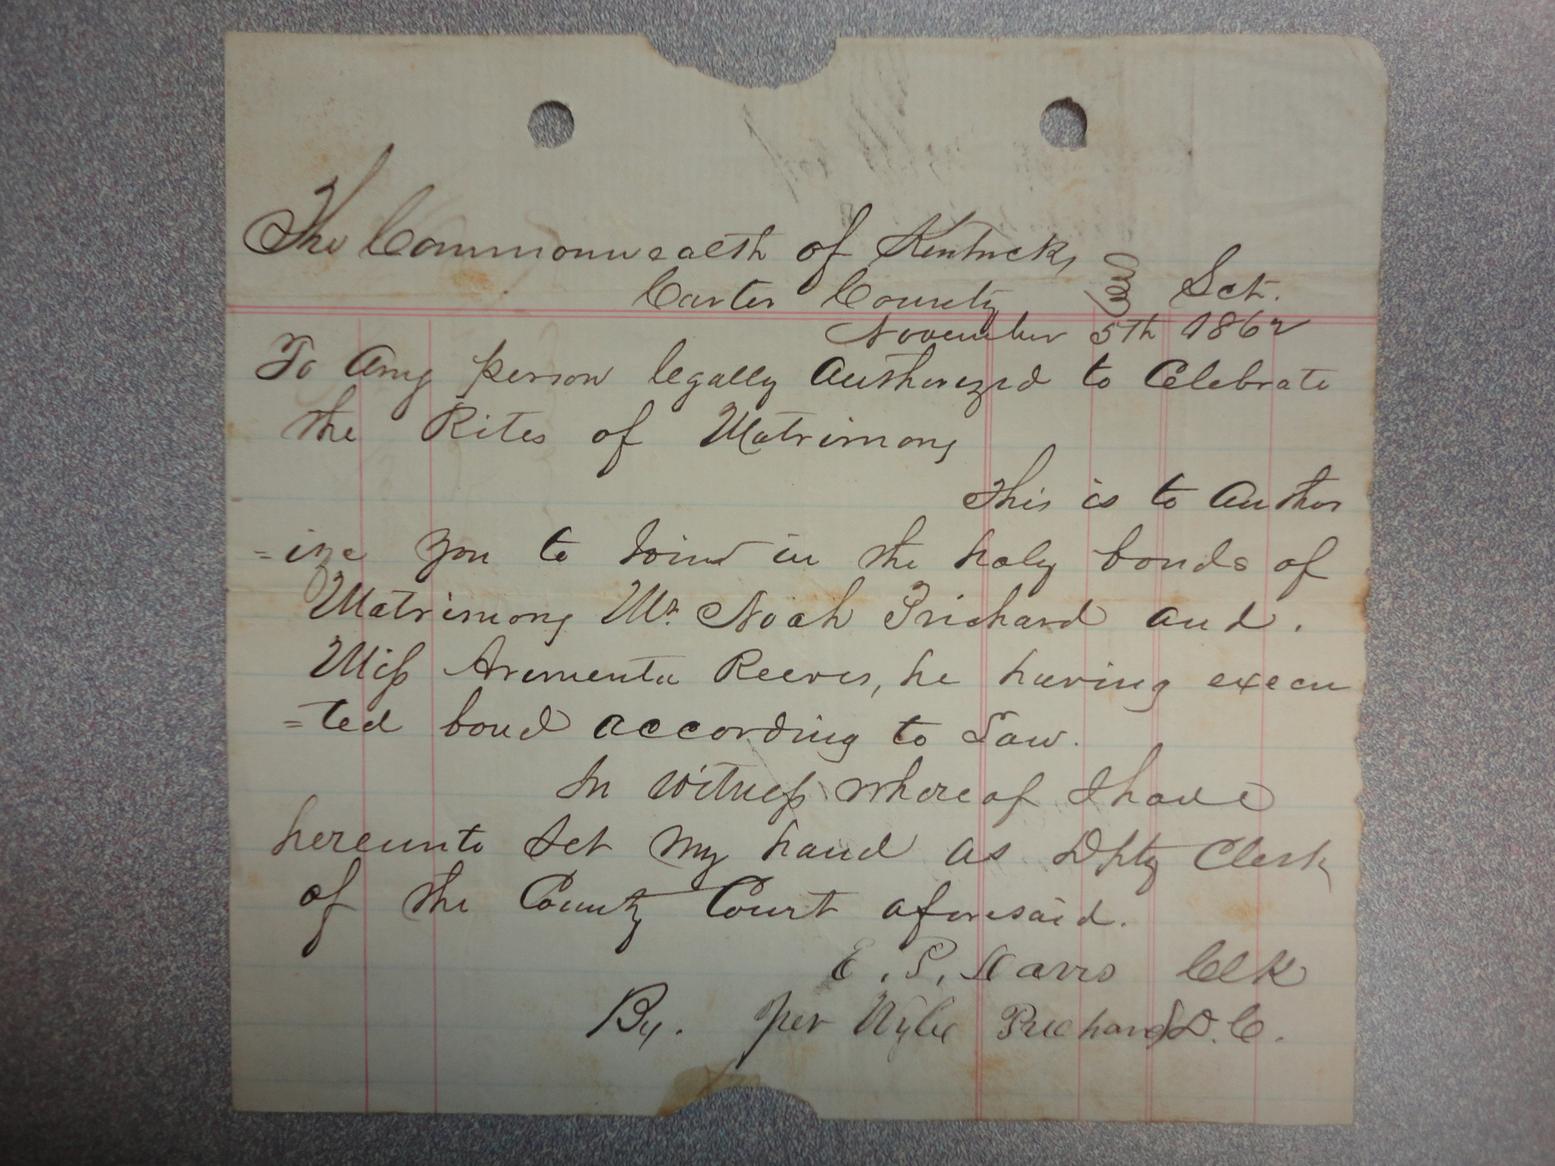 The Commonwealth of Kentucky
Carter County Sct.
November 5th 1862
To Any person legally Authorized to Celebrate
the Rites of Matrimony
This is to Author
=ize you to Join in the holy bonds of
Matrimony Mr. Noah Prichard and.
Miss Arementa Reeves, he having execu
=ted bond according to Law.
In Witness whereof I have
hereunto Set My hand as Dpty Clerk
of the County Court aforesaid.
E. P. Davis Clk
By. per Wylie Prichard D.C.